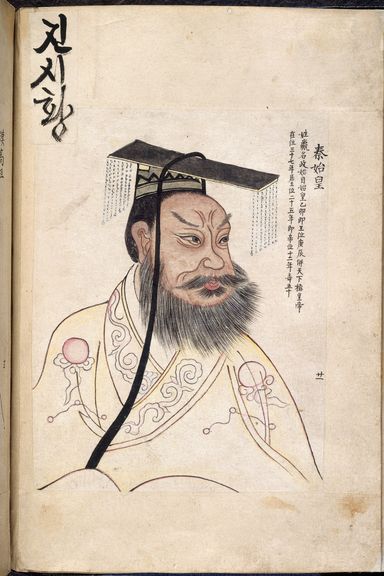 진시황
秦始皇
姓嬴名政始自始皇乙卯即王位庚辰併天下稱皇帝
在位三十七年居王位二十五年即帝位十二年壽五十
廿一